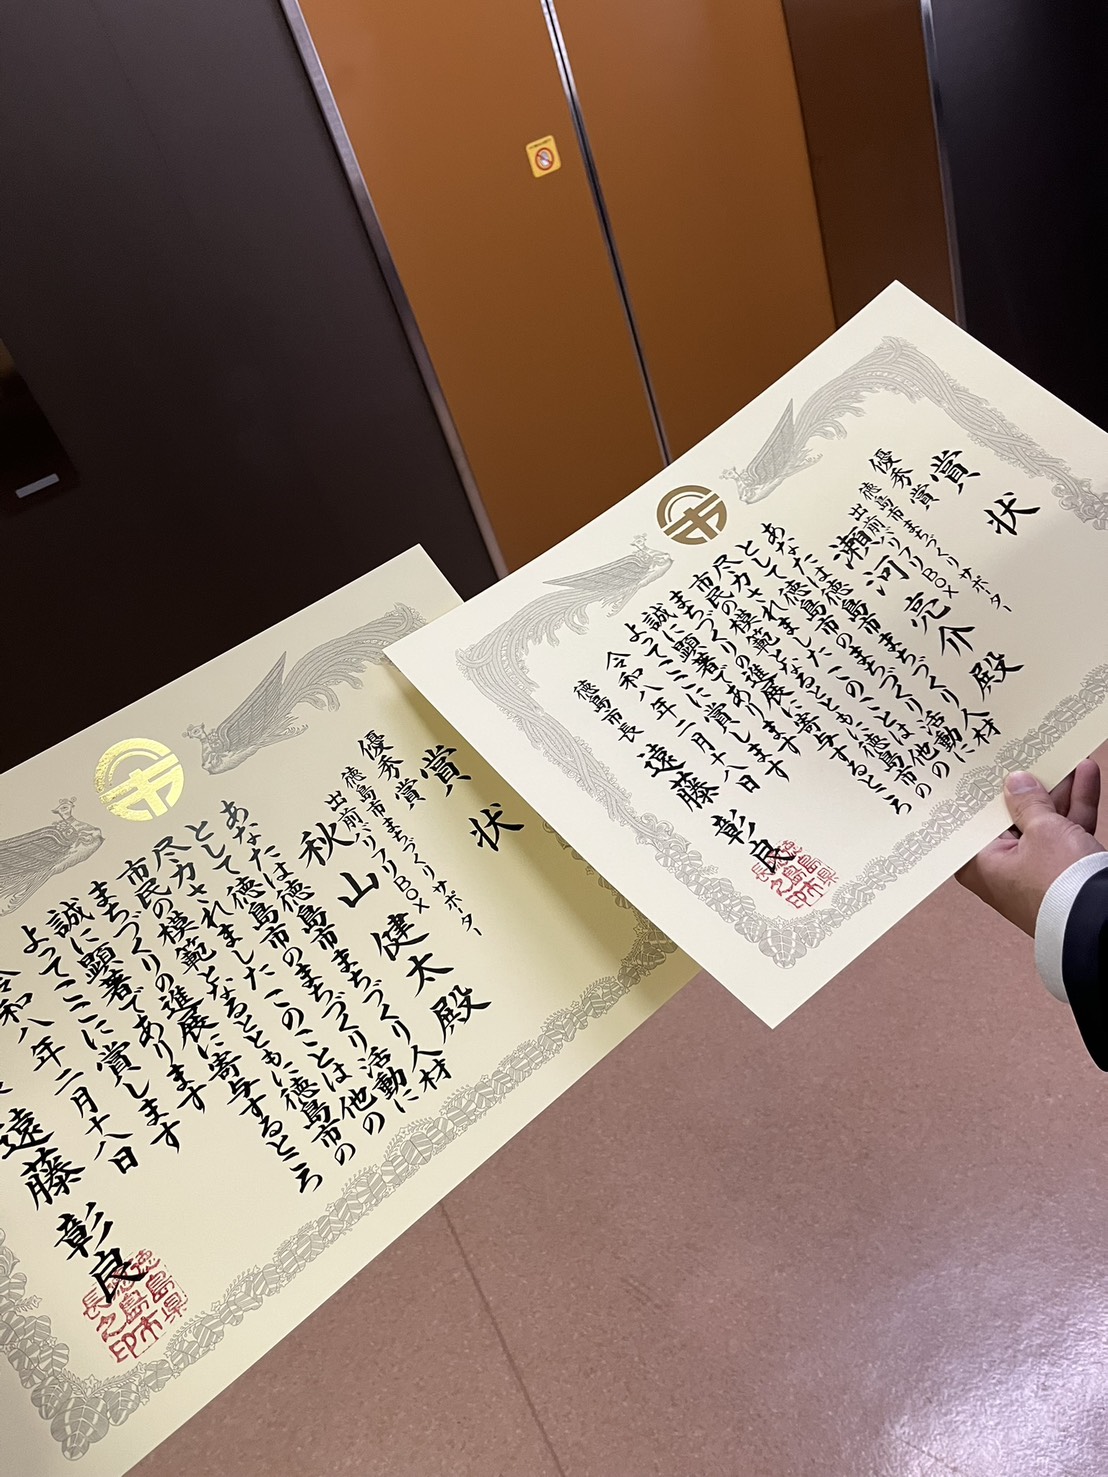 賞状
優秀賞
徳島市まちづくりサポーター
出前バリフリBOX
瀬河亮介殿
あなたは徳島市まちづくり人材
として徳島市のまちづくり活動に
尽力されましたこのことは他の
市民の模範となるとともに徳島市の
まちづくりの進展に寄与するところ
誠に顕著であります
よってここに賞します
令和八年二月十八日
徳島市長 遠藤彰良
徳島県徳島市長之印
賞状
優秀賞
徳島市まちづくりサポーター
出前バリフリBOX
秋山健太殿
あなたは徳島市まちづくり人材
として徳島市のまちづくり活動に
尽力されましたこのことは他の
市民の模範となるとともに徳島市の
まちづくりの進展に寄与するところ
誠に顕著であります
よってここに賞します
令和八年二月十八日
遠藤彰良
徳島県徳島市長之印